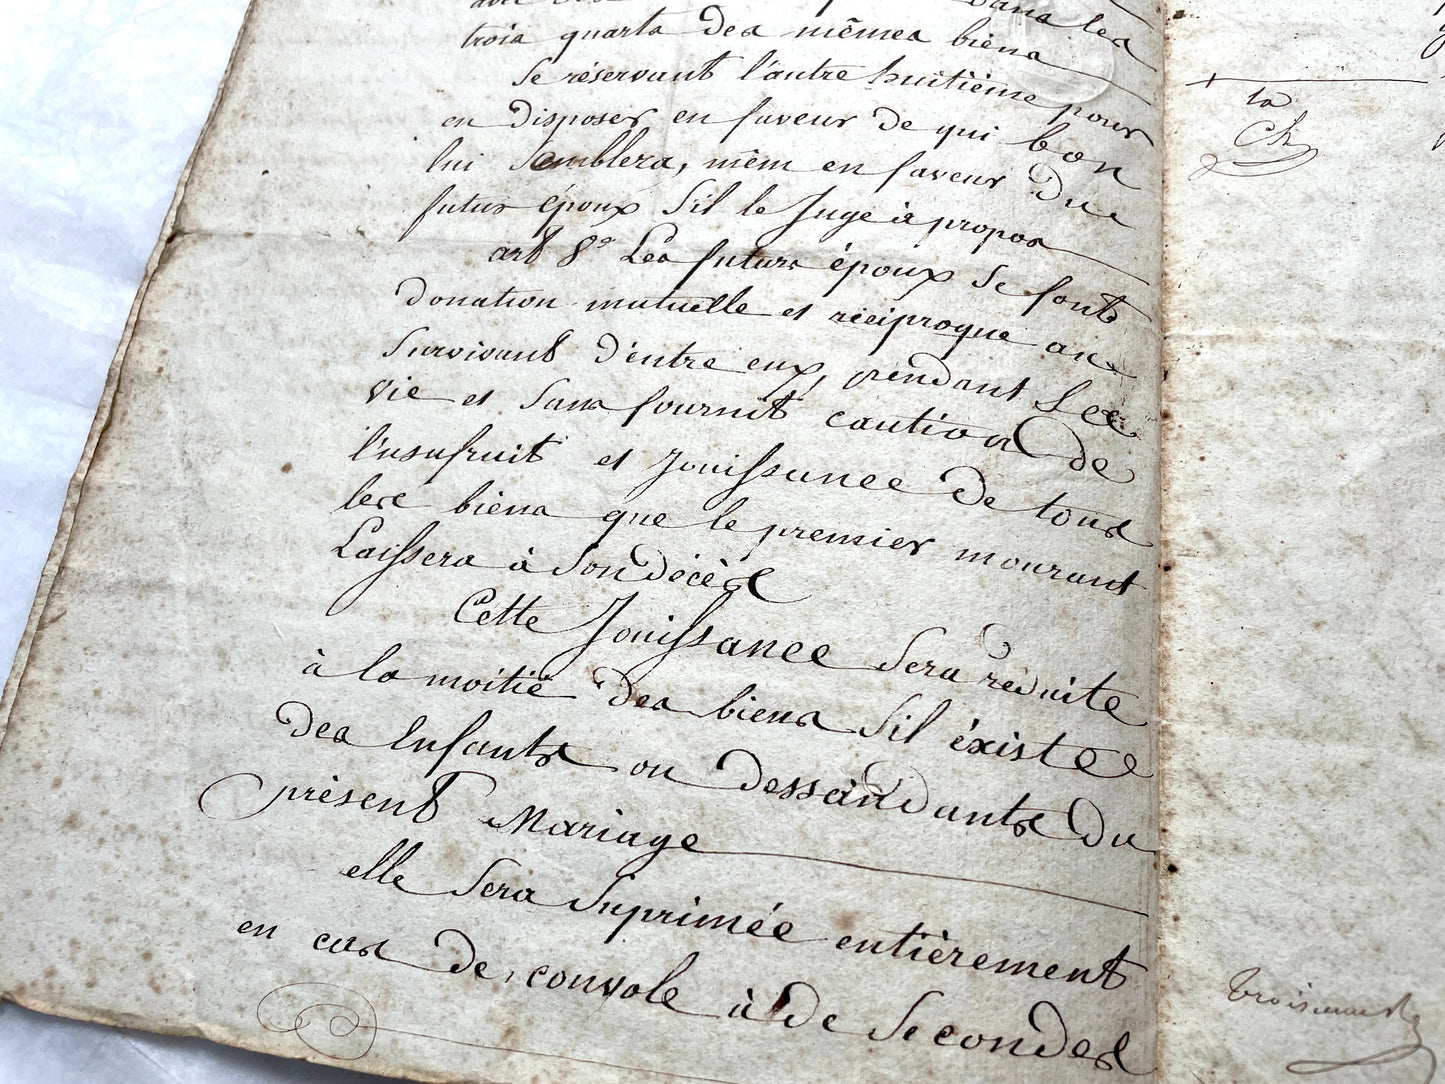 dans les
trois quarts des mêmes biens
se réservant l'autre huitième pour
en disposer en faveur de qui bon
lui semblera, mêm en faveur du
futur époux s'il le juge à propos
art 8º Les futurs époux se font
donation mutuelle et réciproque au
survivant d'entre eux, pendant sa
vie et sans fournir caution de
l'usufruit et jouissance de tous
les biens que le premier mourant
laissera à son décès
Cette jouissance sera réduite
à la moitié des biens s'il éxiste
des enfants ou dessandants du
présent mariage
elle sera suprimée entièrement
en cas de convole à de secondes